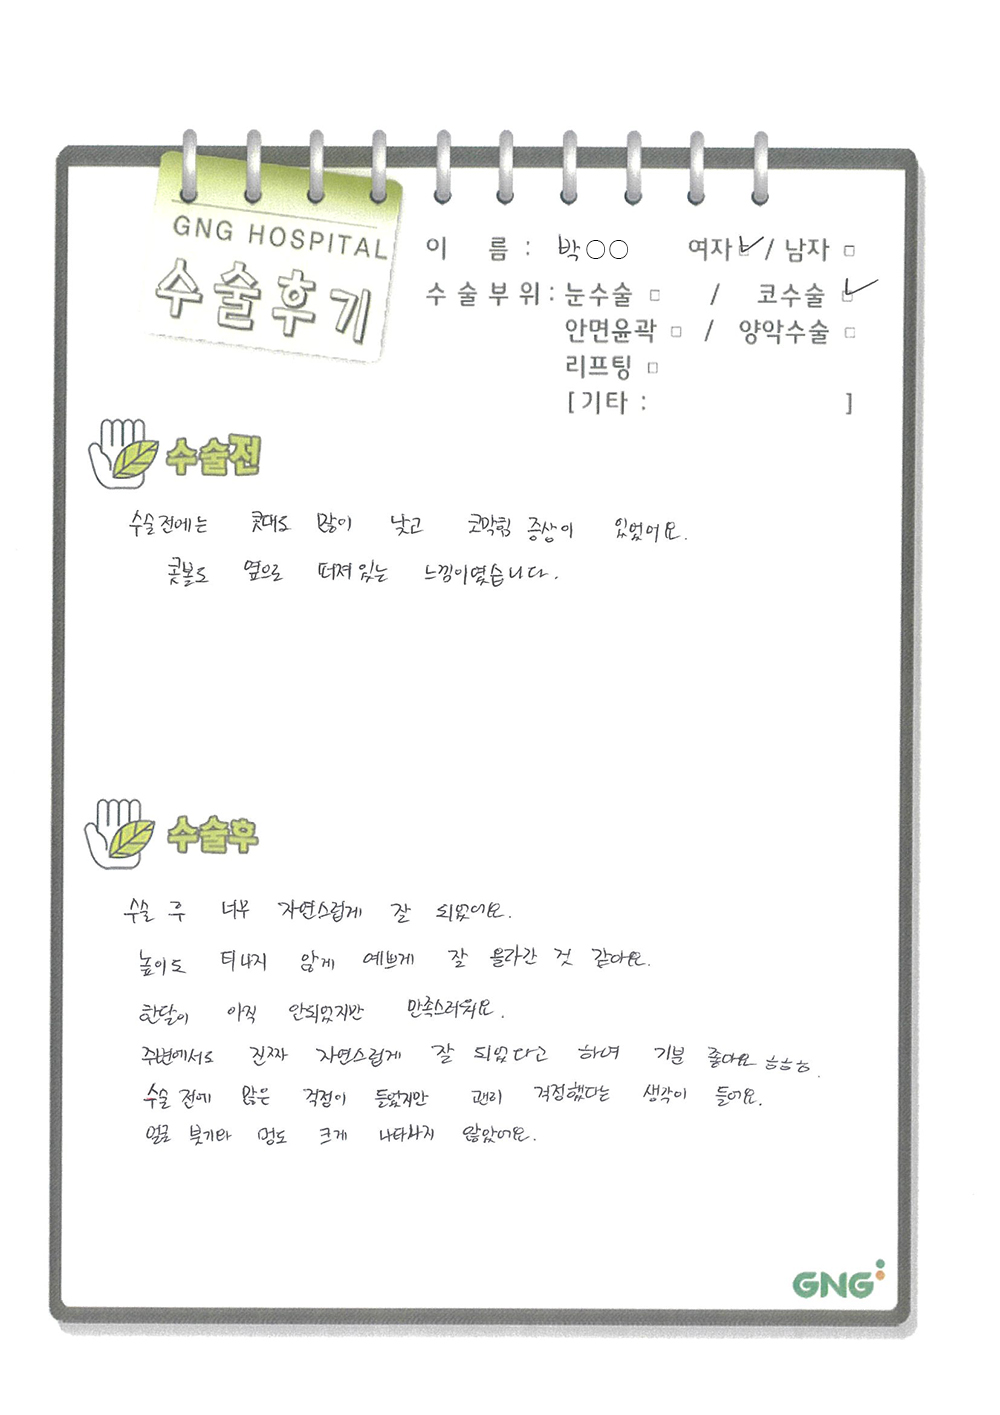 GNG HOSPITAL
수술후기
이 름 : 박○○ 여자 ☑ / 남자 □
수술부위 : 눈수술 □ / 코수술 ☑
안면윤곽 □ / 양악수술 □
리프팅 □
[기타 : ]
수술전
수술전에는 콧대도 많이 낮고 코막힘 증상이 있었어요.
콧볼도 옆으로 퍼져있는 느낌이였습니다.
수술후
수술 후 너무 자연스럽게 잘 되었어요.
높이도 티나지 않게 예쁘게 잘 올라간 것 같아요.
한달이 아직 안되었지만 만족스러워요.
주변에서도 진짜 자연스럽게 잘 되었다고 하여 기분 좋아요 ㅎㅎㅎ.
수술 전에 많은 걱정이 들었지만 괜히 걱정했다는 생각이 들어요.
얼굴 붓기와 멍도 크게 나타나지 않았어요.
GNG